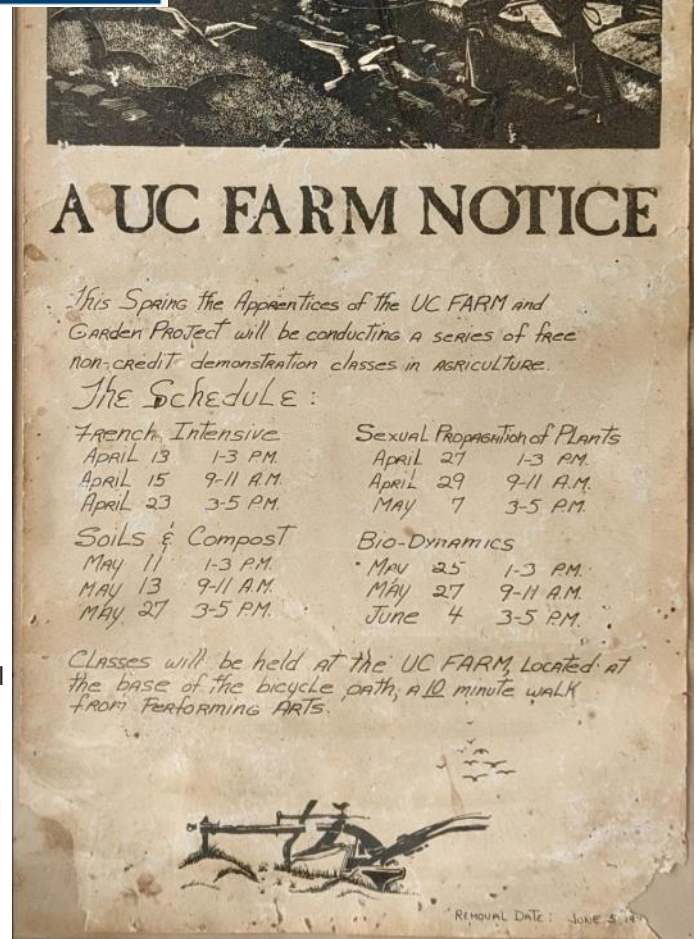 A UC FARM NOTICE
This Spring the Apprentices of the UC FARM and
Garden Project will be conducting a series of free
non-credit demonstration classes in agriculture.
The Schedule:
French Intensive
April 13 1-3 P.M.
April 15 9-11 A.M.
April 23 3-5 P.M.
Sexual Propagation of Plants
April 27 1-3 P.M.
April 29 9-11 A.M.
May 7 3-5 P.M.
Soils & Compost
May 11 1-3 P.M.
May 13 9-11 A.M.
May 27 3-5 P.M.
Bio-Dynamics
May 25 1-3 P.M.
May 27 9-11 A.M.
June 4 3-5 P.M.
Classes will be held at the UC FARM, located at
the base of the bicycle path, a 10 minute walk
from Performing Arts.
REMOVAL DATE: JUNE 5